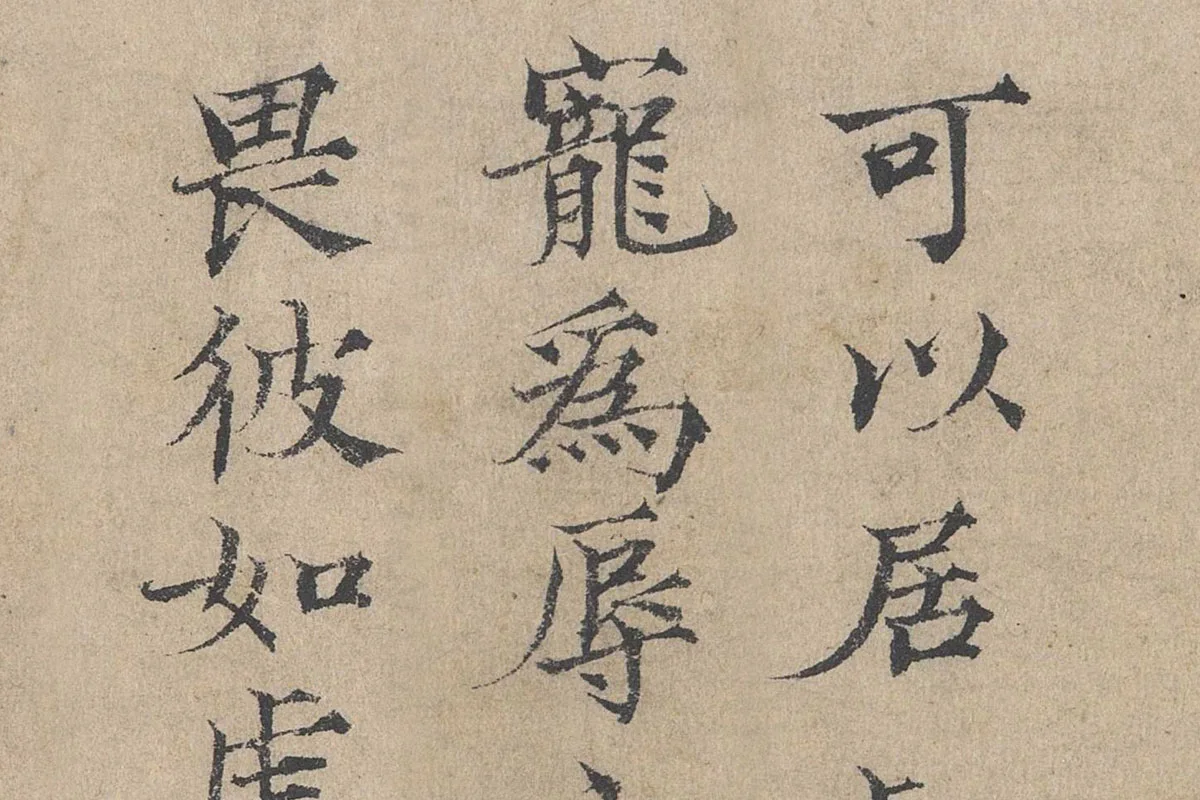 可以居
寵為辱
畏彼如